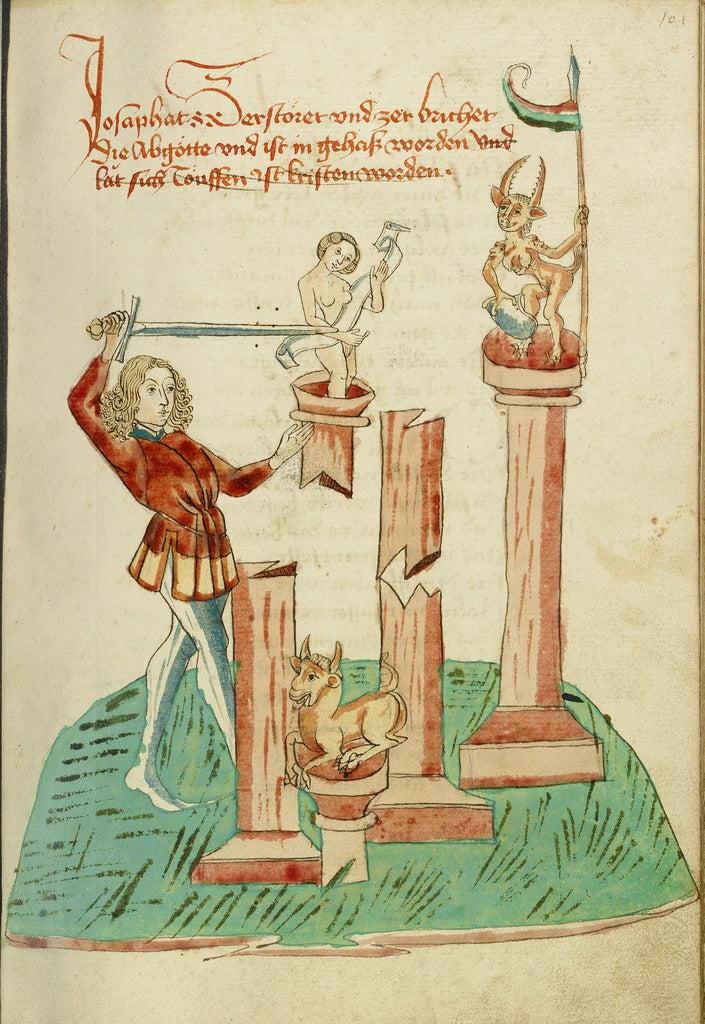 101
Josaphat Zerstöret vnd zer brichet
Die Abgötte vnd ist in gehaß worden vnd
hat sich Touffen ist kristen worden.